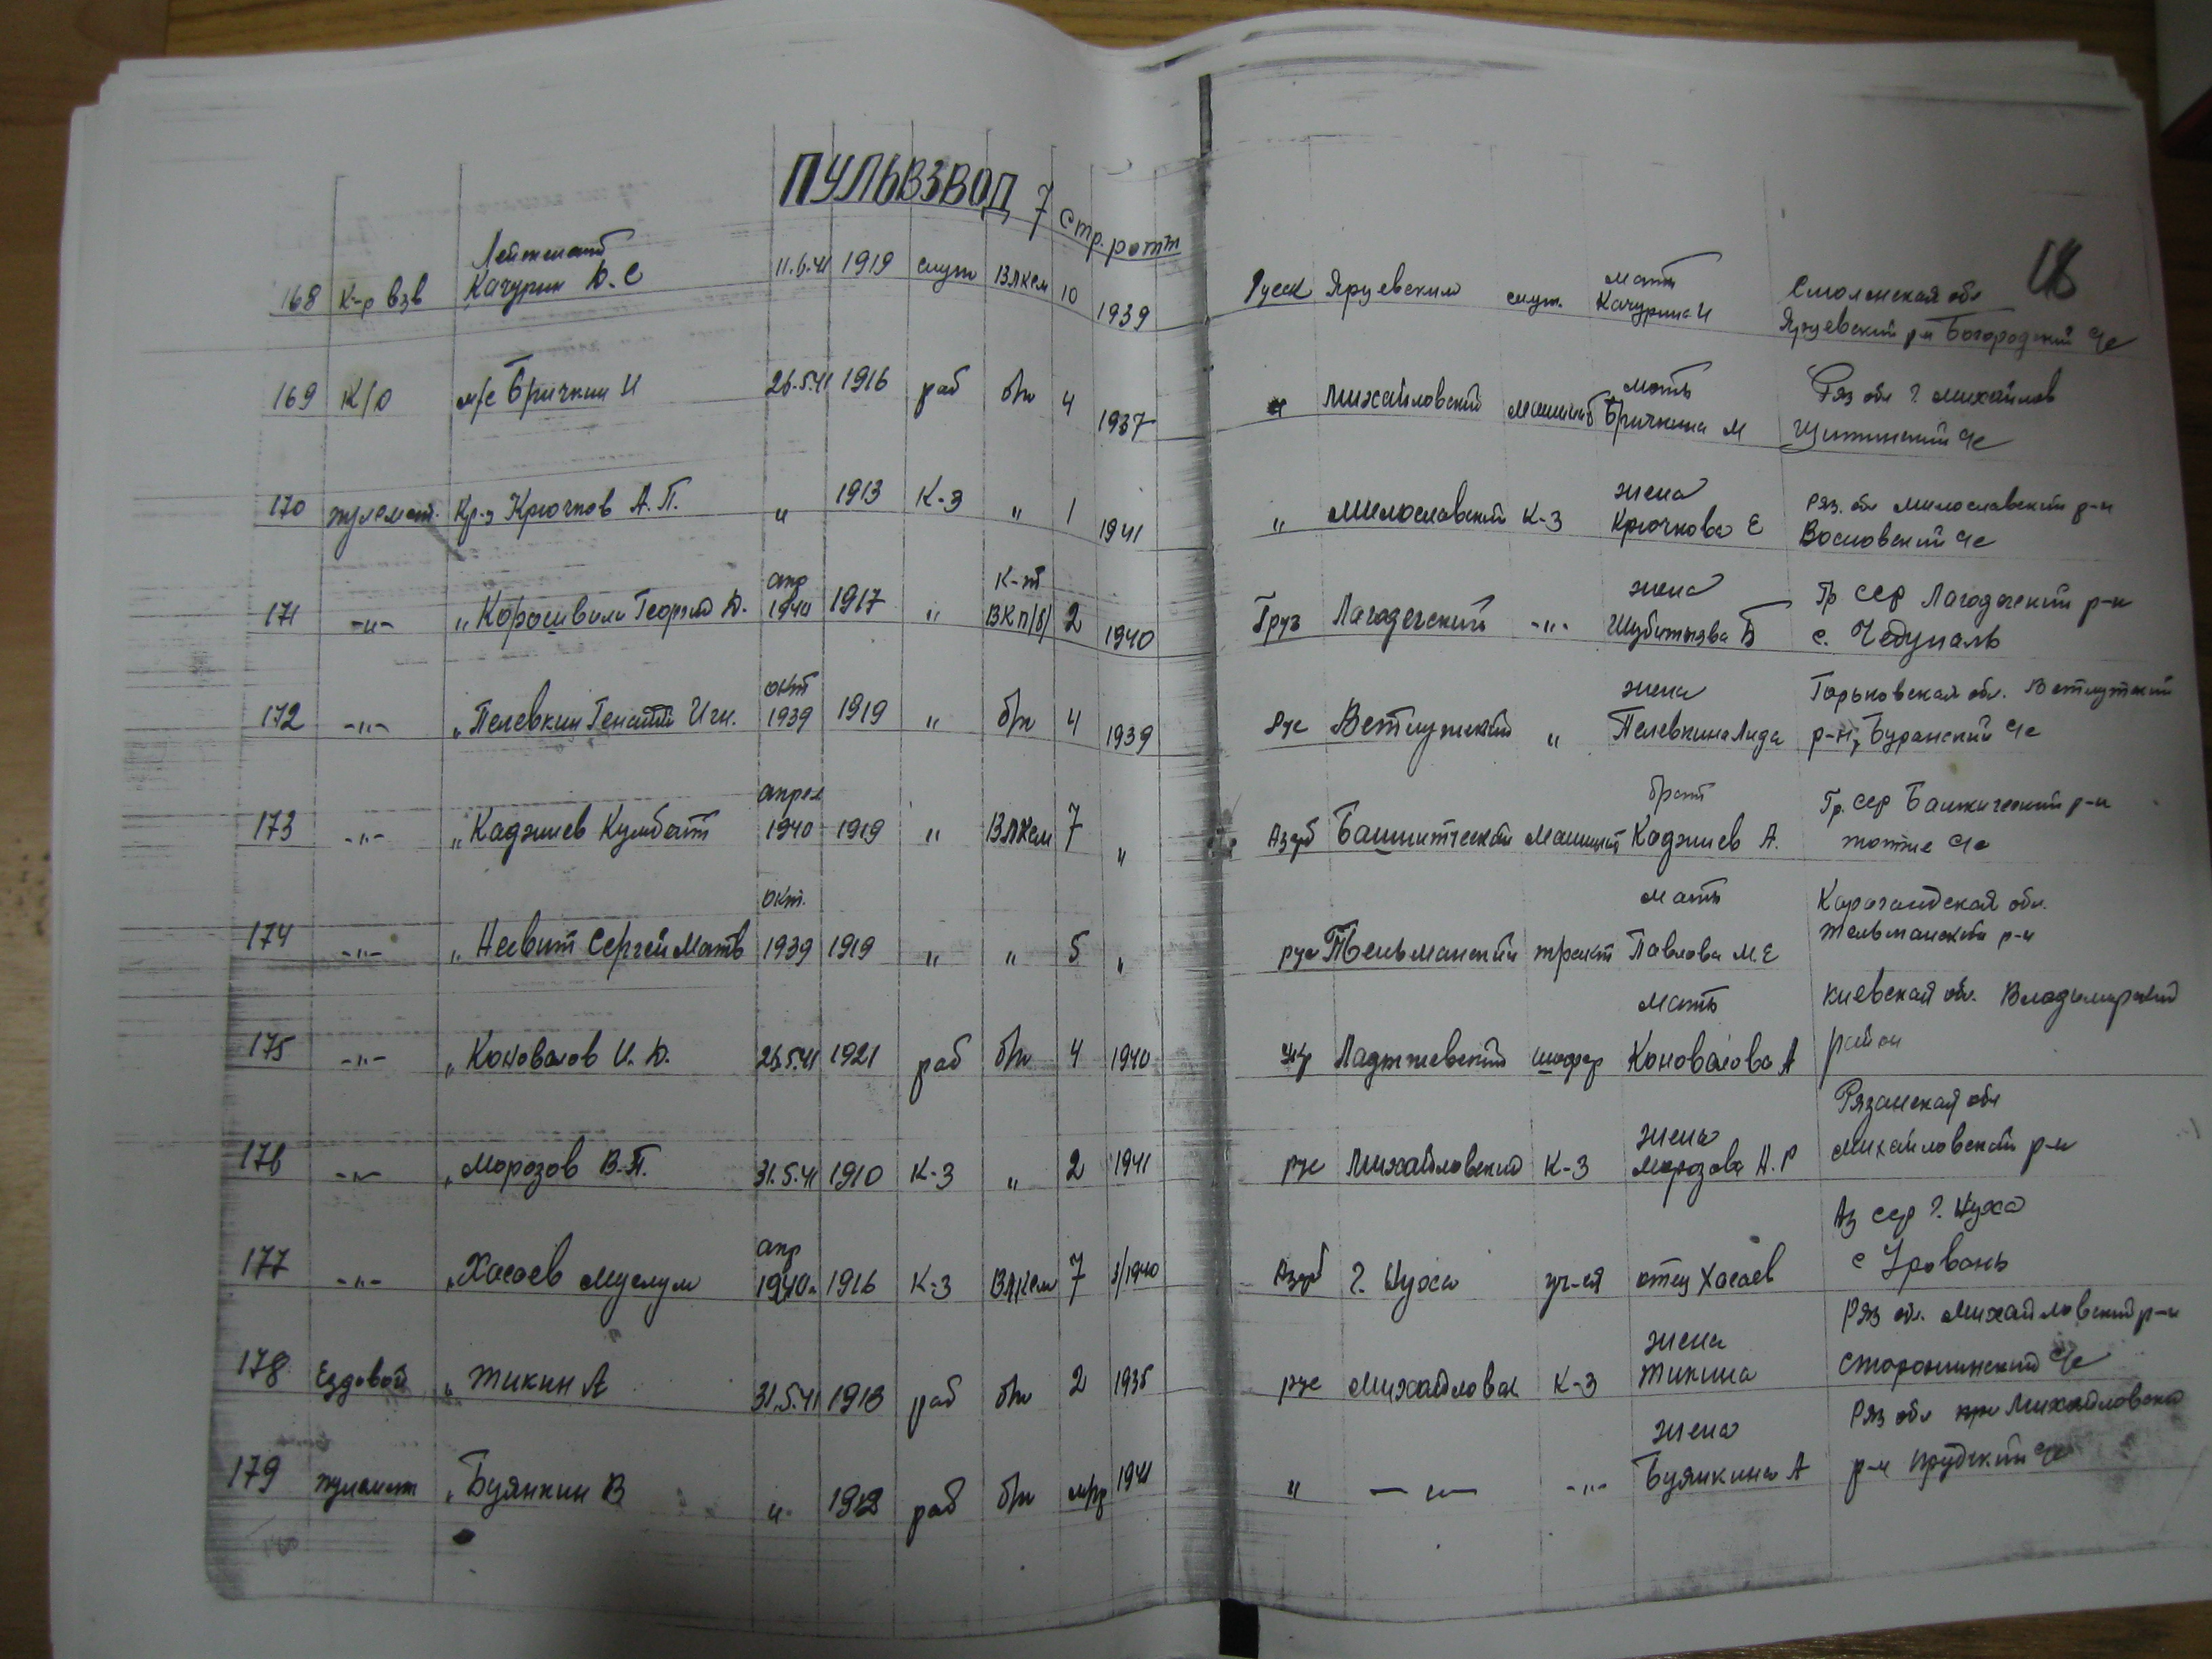 ПУЛЬВЗВОД 7 стр. роты
18
Лейтенант мать Смоленская обл
168 К-р взв Качурин Д. С 11.6.41 1919 служ ВЛКСМ 10 1939 Русск Ярцевским служ. Качурина И Ярцевский р-н Богородский с/с
мать Ряз обл г. Михайлов
169 К/О м/с Бричкин И 26.5.41 1916 раб б/п 4 1937 " Михайловский Бричкина М с/с
жена Ряз. обл Милославский р-н
170 пулемет. Кр-ц Крючков А. П. " 1913 К-З " 1 1941 " Милославский К-З Крючкова Е с/с
апр К-т жена Гр ССР Лагодехский р-н
171 -"- " Георгий Д. 1940 1917 " ВКП/б/ 2 1940 Груз Лагодехский -"- Б с.
окт жена Горьковская обл. Ветлужский
172 -"- " Пелевкин Игн. 1939 1919 " б/п 4 1939 Рус Ветлужский " Пелевкина Лида р-н, Буранский с/с
апрел брат Гр. ССР р-н
173 -"- " Каджиев Кумбат 1940 1919 " ВЛКСМ 7 " Азрб Каджиев А. с/с
окт. мать Карагандская обл.
174 -"- " Сергей Матв 1939 1919 " " 5 " рус Тельманский тракт Павлова М.Е Тельманский р-н
мать Киевская обл.
175 -"- " Коновалов И. Д. 26.5.41 1921 раб б/п 4 1940 укр шофер Коновалова А район
жена Рязанская обл
176 -"- " Морозов В. П. 31.5.41 1910 К-З " 2 1941 рус Михайловский К-З Морозова Н. Р Михайловский р-н
апр Аз ССР г. Нуха
177 -"- " Хасаев Муслум 1940 1916 К-З ВЛКСМ 7 1940 Азрб г. Нуха уч-ся отец Хасаев с
жена Ряз обл. Михайловский р-н
178 Ездовой " Тикин А 31.5.41 1913 раб б/п 2 1935 рус К-З Тикина с/с
жена Ряз обл Михайловский
179 пулемет " Буянкин В " 1912 раб б/п 1941 " -"- -"- Буянкина А р-н Прудский с/с